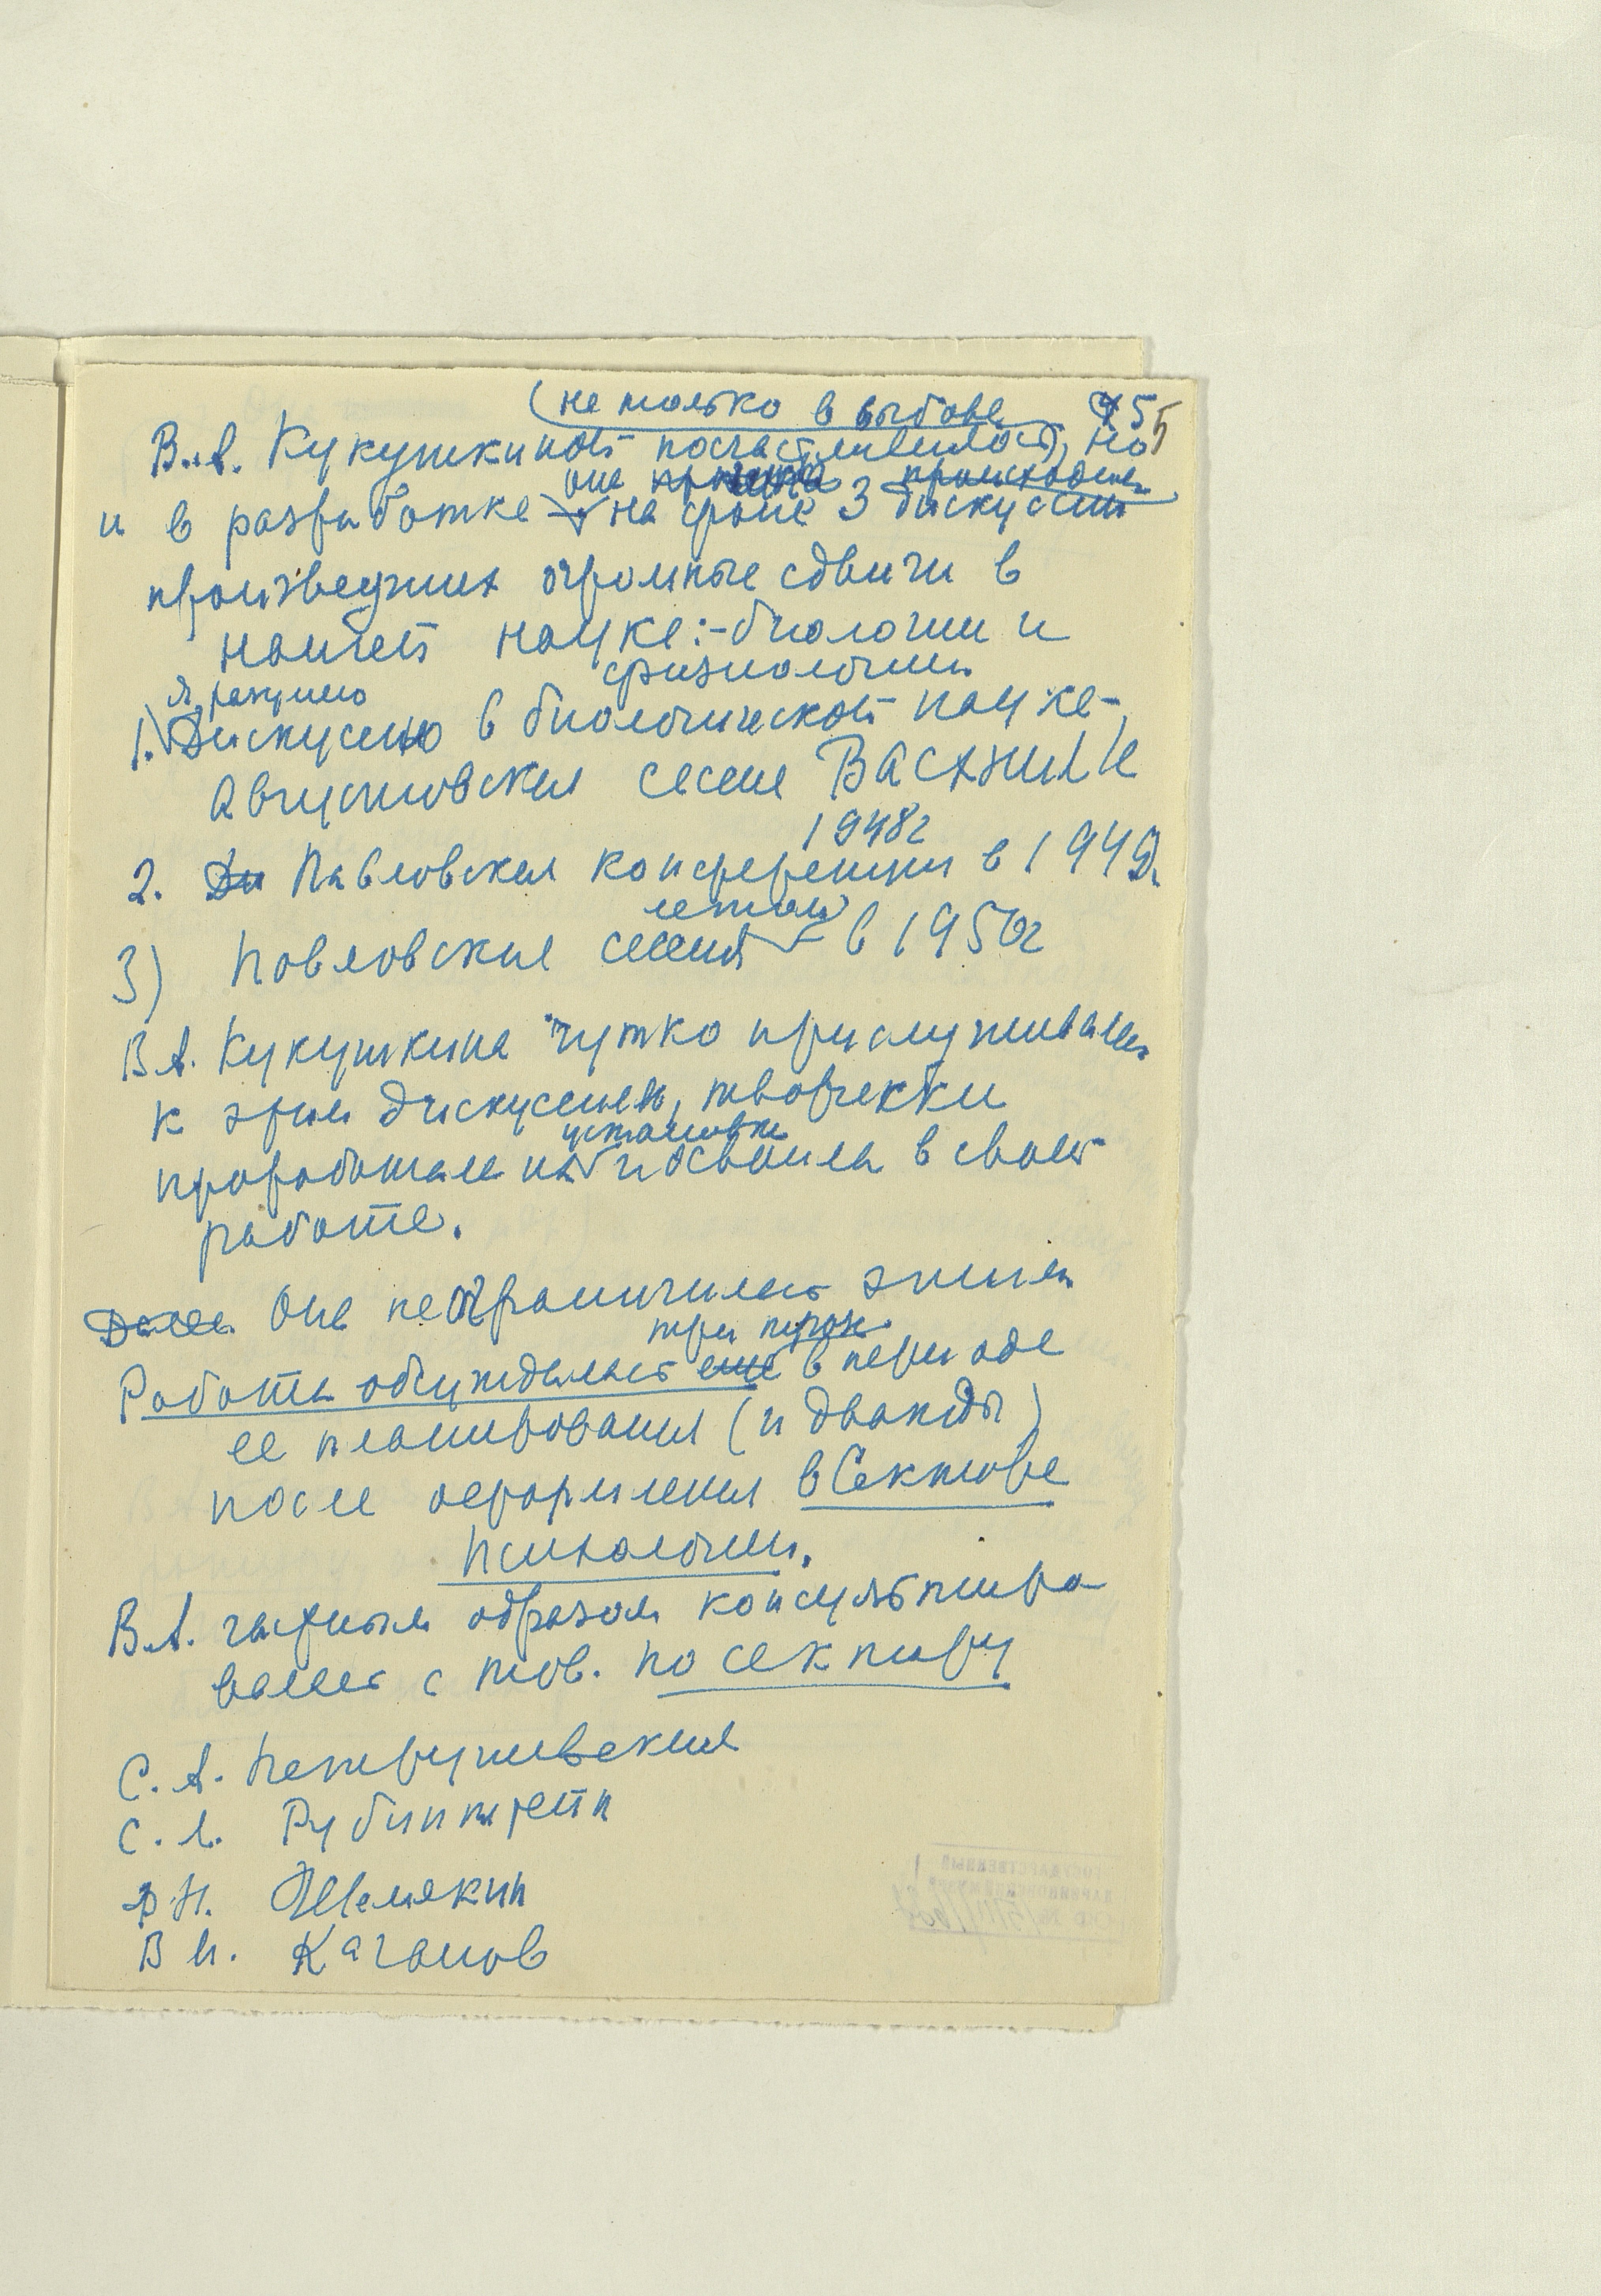 (не только в выборе 55
В.А. Кукушкиной посчастливилось), но
она происходила
и в разработке на фоне 3 дискуссий
произведших огромные сдвиги в
нашей науке:-биологии и
физиологии
Я разумею
1. Дискуссию в биологической науке-
Августовская сессия ВАСХНИЛ'е
1948г
2. Ди Павловская конференция в 1949г.
летом
3) Павловская сессия – в 1950г
В.А. Кукушкина чутко прислушивалась
к этим дискуссиям, творчески
установки
проработала их и освоила в своей
работе.
Далее Она не ограничилась этим
три турах
Работа обсуждалась еще в периоде
ее планирования (и дважды)
после оформления в Секторе
Психологии.
В.А. частным образом консультиро
валась с тов. по сектору
С. А. Петрушевский
С. Л. Рубинштейн
Ф Н. Шемякин
В М. Каганов